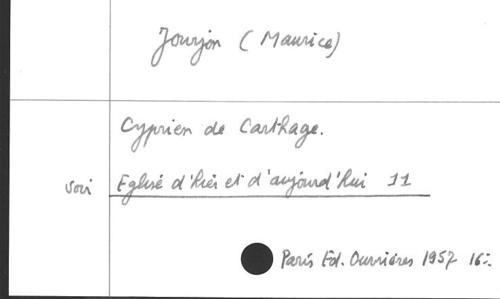 Jourjon (Maurice)
Cyprien de Carthage.
voir Eglise d'hier et d'aujourd'hui 11
Paris Ed. Ouvrières 1957 16: